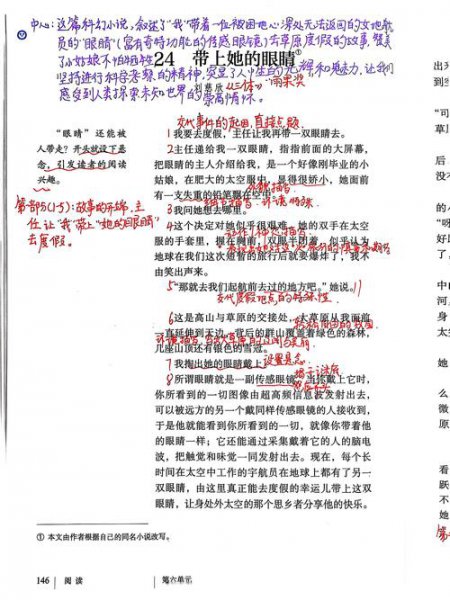 中心:这篇科幻小说,叙述了"我"带着一位被困地心深处无法返回的女地航
员的"眼睛"(富有奇特功能的传感眼镜)去草原度假的故事,赞美
了小姑娘不怕牺牲
坚持进行科学考察的精神,突显了人中性的光辉和魅力,让我们
感受到人类探索未知世界的崇高情怀。
24 带上她的眼睛①
刘慈欣 《三体》"雨果奖"
"眼睛"还能被
人带走?开头就设下悬
念,引发读者的阅读
兴趣。
第一部分(1-5):故事的开端,主
任让"我"带上"她的眼睛"
去度假。
交代事件的起因,直接点题
1我要去度假,主任让我再带一双眼睛去。
2主任递给我一双眼睛,指指前面的大屏幕,
把眼睛的主人介绍给我,是一个好像刚毕业的小
姑娘,在肥大的太空服中,显得很娇小,她面前
有一支失重的铅笔飘在空中。
3我问她想去哪里。
4这个决定对她似乎很艰难。她的双手在太空
服的手套里,握在胸前,双眼半闭着,似乎认为
地球在我们这次短暂的旅行后就要爆炸了,我不
由笑出声来。
5"那就去我们起航前去过的地方吧。"她说。
交代度假地点的特殊性
6这是高山与草原的交接处,大草原从我面前
一直延伸到天边,背后的群山覆盖着绿色的森林,
几座山顶还有银色的雪冠。
7我掏出她的眼睛戴上。设置悬念
8所谓眼睛就是一副传感眼镜,当你戴上它时,
你所看到的一切图像由超高频信息波发射出去,
可以被远方的另一个戴同样传感眼镜的人接收到,
于是他就能看到你所看到的一切,就像你带着他
的眼睛一样;它还能通过采集戴着它的人的脑电
波,把触觉和味觉一同发射出去。现在,每个长
时间在太空中工作的宇航员在地球上都有了另一
双眼睛,由这里真正能去度假的幸运儿带上这双
眼睛,让身处外太空的那个思乡者分享他的快乐。
① 本文由作者根据自己的同名小说改写。
146 阅读 第六单元